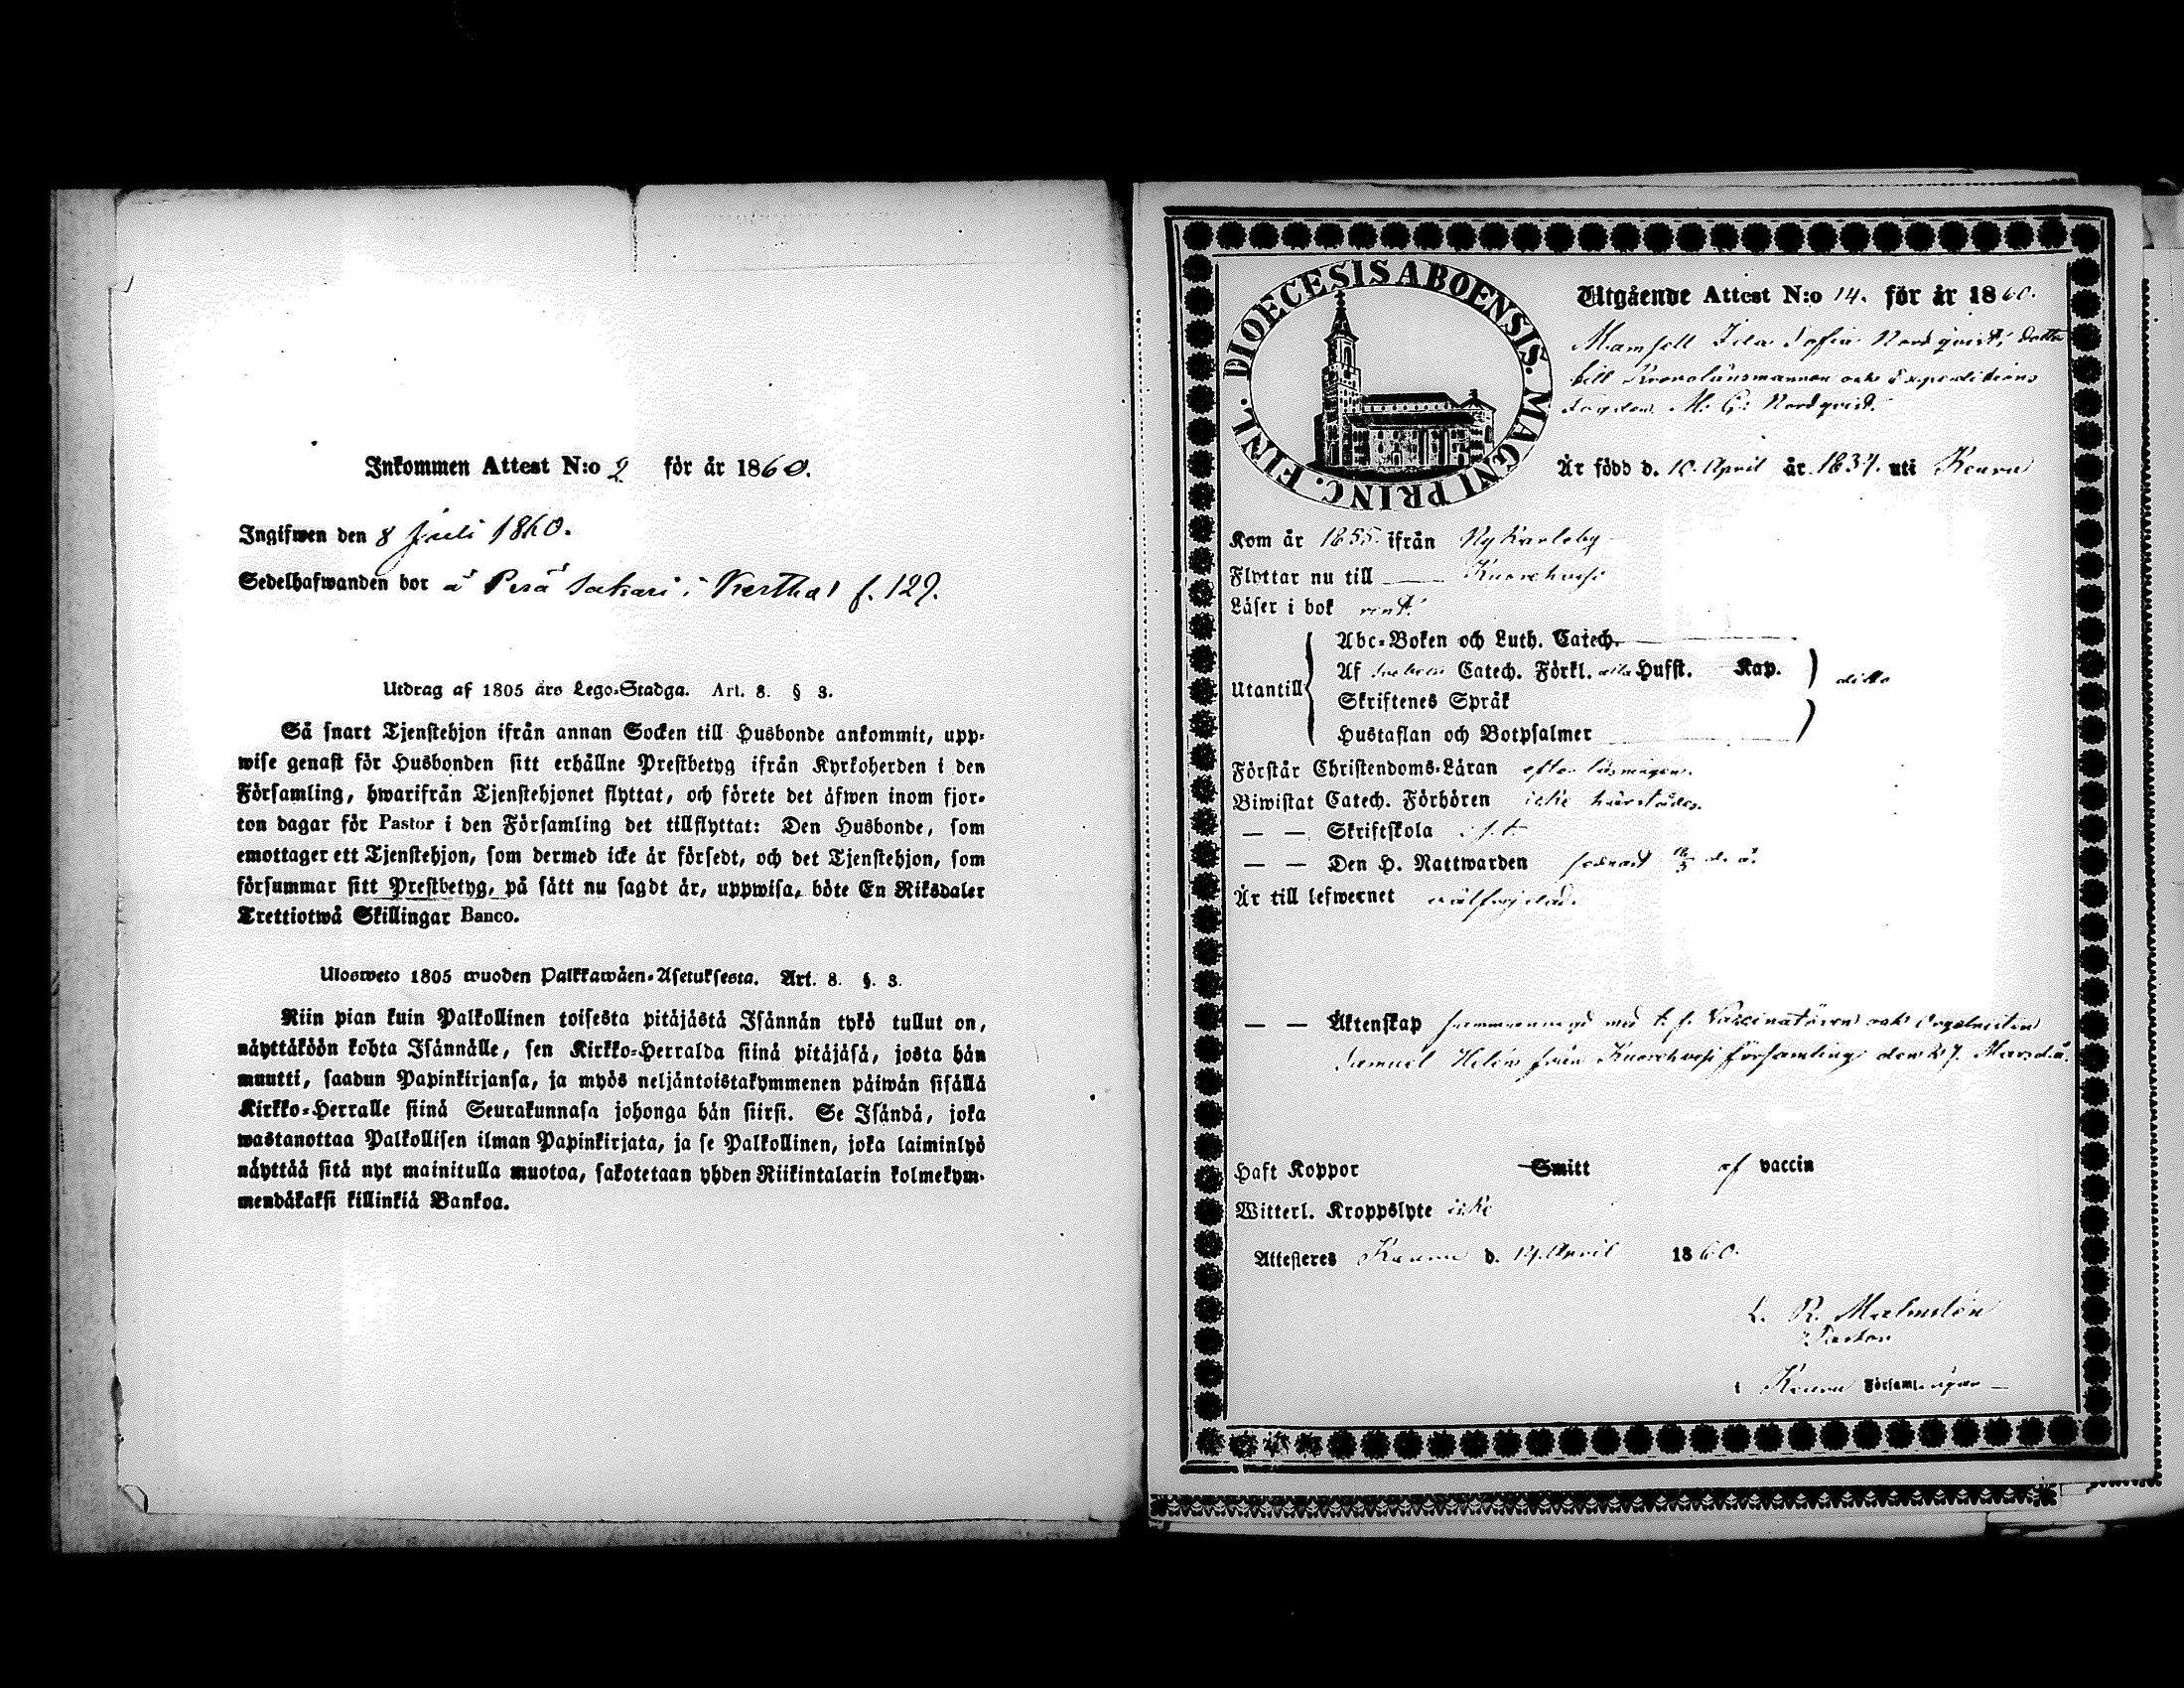 Inkommen Attest N:o 2 för år 1860.
Ingifwen den 8 Juli 1860.
Sedelhafwanden bor å Perä Sakari i Kertha f. 129.
Utdrag af 1805 års Lego-Stadga. Art. 8. § 3.
Så snart Tjenstehjon ifrån annan Socken till Husbonde ankommit, upp-
wise genast för Husbonden sitt erhållne Prestbetyg ifrån Kyrkoherden i den
Församling, hwarifrån Tjenstehjonet flyttat, och förete det äfwen inom fjor-
ton dagar för Pastor i den Församling det tillflyttat: Den Husbonde, som
emottager ett Tjenstehjon, som dermed icke är försedt, och det Tjenstehjon, som
försummar sitt Prestbetyg, på sätt nu sagdt är, uppwisa, böte En Riksdaler
Trettiotwå Skillingar Banco.
Ulosweto 1805 wuoden Palkkawäen-Asetuksesta. Art. 8. §. 3.
Niin pian kuin Palkollinen toisesta pitäjästä Isännän tykö tullut on,
näyttäköön kohta Isännälle, sen Kirkko-Herralda siinä pitäjäsä, josta hän
muutti, saadun Papinkirjansa, ja myös neljäntoistakymmenen päiwän sisällä
Kirkko-Herralle siinä Seurakunnasa johonga hän siirsi. Se Isändä, joka
wastanottaa Palkollisen ilman Papinkirjata, ja se Palkollinen, joka laiminlyö
näyttää sitä nyt mainitulla muotoa, sakotetaan yhden Riikintalarin kolmekym-
mendäkaksi killinkiä Bankoa.
DIOECESIS ABOENSIS. MAGNI PRINC. FINL.
Utgående Attest N:o 14. för år 1860.
Mamsell Ida Sofia Nordqvist, dotter
till Kronolänsmannen och Expeditions
Fogden M. G. Nordqvist.
Är född d. 10. April år 1837. uti Keuru
Kom år 1855. ifrån Ny Karleby
Flyttar nu till Kuorehvesi
Läser i bok rent.
Utantill
Abc-Boken och Luth. Catech.
Af Svebelii Catech. Förkl. alla Hufst. Kap.
ditto
Skriftenes Språk
Hustaflan och Botpsalmer
Förstår Christendoms-Läran efter läsningen.
Biwistat Catech. Förhören icke härstädes.
— — Skriftskola
— — Den H. Nattwarden senast d. å.
Är till lefwernet wälfrejdad.
— — Äktenskap sammanwigd med t. f. Vaccinatören och Orgelnisten
Samuel Helén från Kuorehvesi församling den 27. Mars d. å.
Haft Koppor Smitt af vaccin
Witterl. Kroppslyte icke
Attesteras Keuru d. 14. April 1860.
L. R. Malmstén
Pastor
i Keuru Församlingar